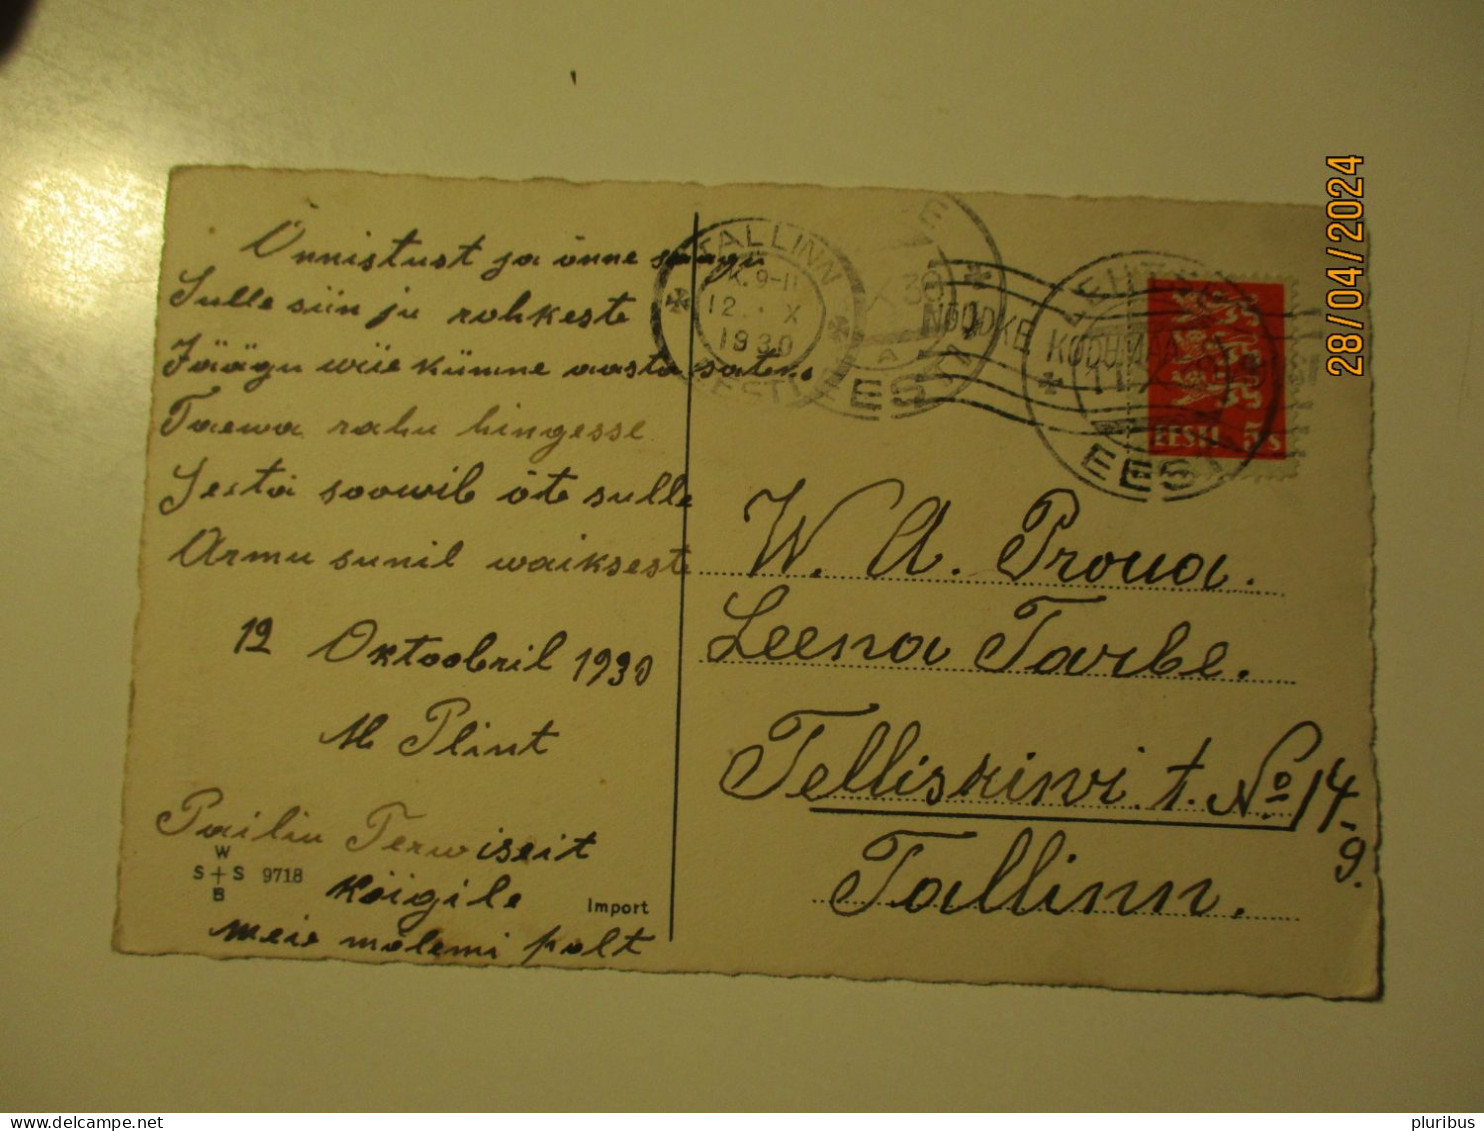 Õnnistust ja õnne saagu
Sulle siin ju rohkeste
Jäägu wiie kümne aasta
Taewa rahu hingesse
Seeta soowib õte sulle
Armu sunil waikseste
12 Oktoobril 1930
M Plint
Pailiu Terwiseit
kõigile
meie mõlemi polt
W
S + S 9718
B
Import
TALLINN
K. 9-11
12 X
1930
EESTI
NÕUDKE KODUMAA
EESTI
EESTI 5 S
W. A. Proua.
Leena Tarbe.
Telliskiwi t. No 14-
9.
Tallinn.
28/04/2024
pluribus